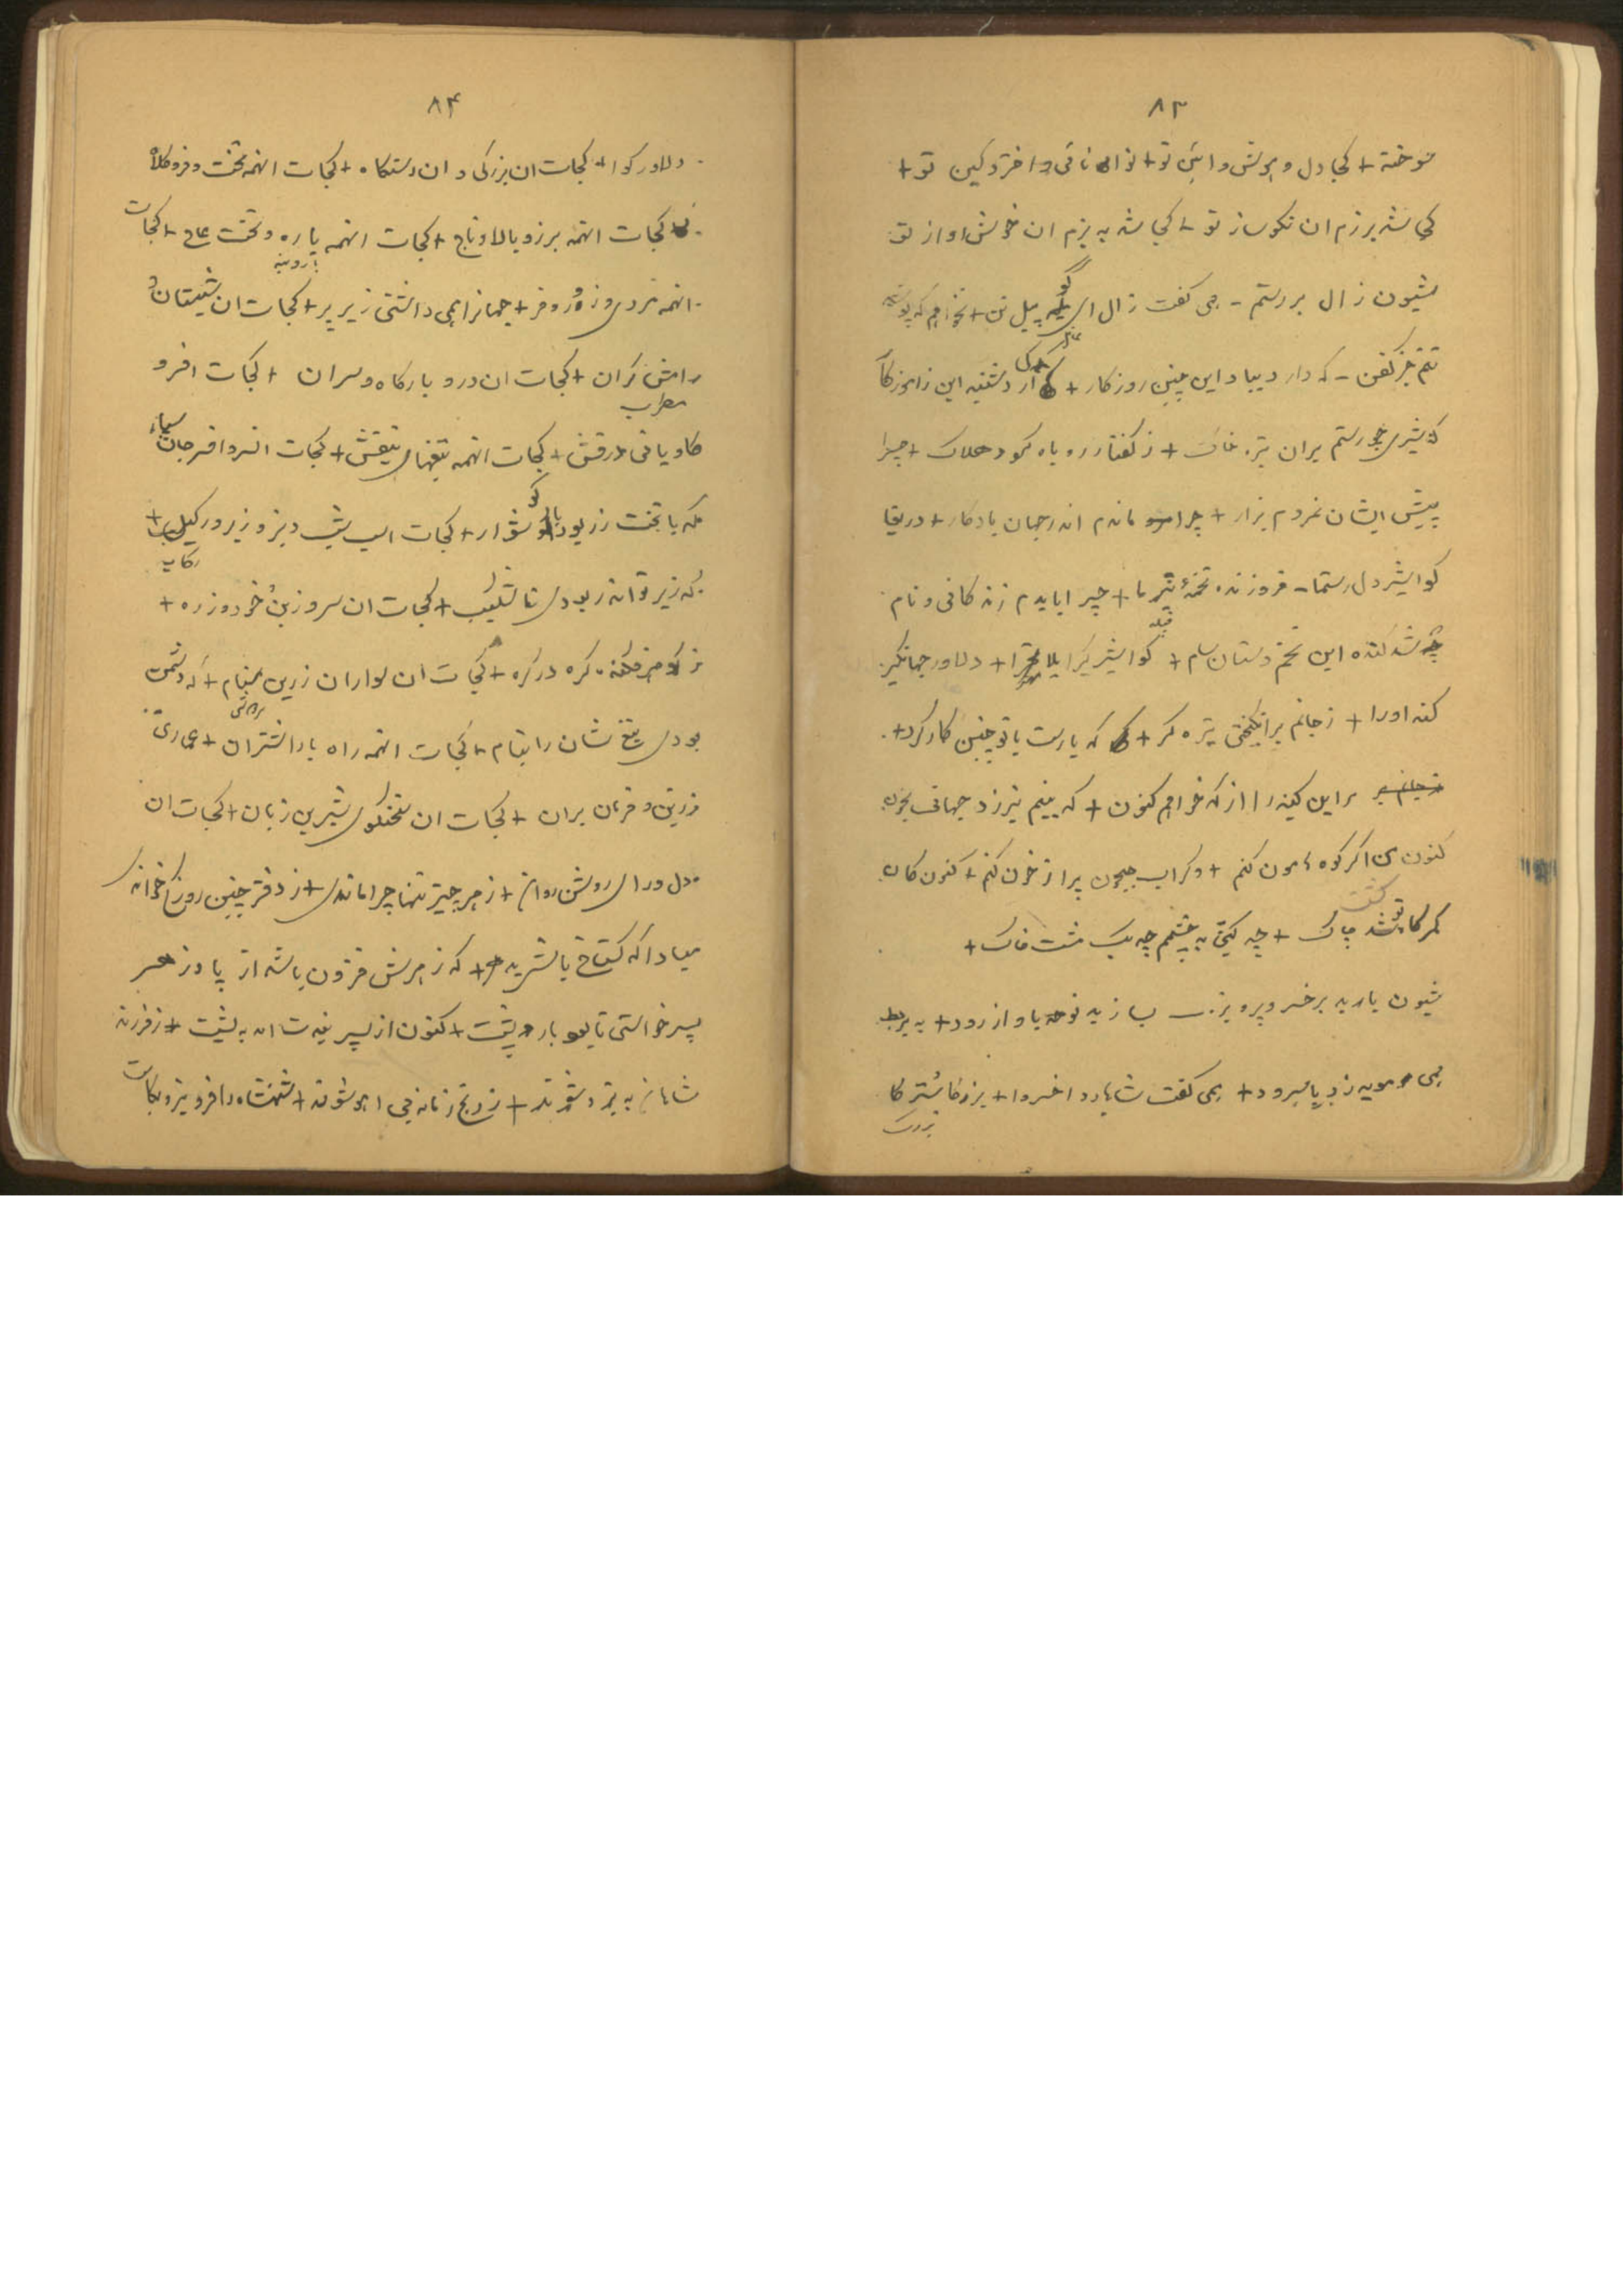 ۸۳
سوخته + کجا دل و هوش و ائین تو + توانائی و اختر و کین تو +
کجا شد برزم ان نکو ساز تو + کجا شد به بزم ان خوش اواز تو
شیون زال بر رستم - همی گفت زال ای گو پیل تن + نخواهم که پوشد
تنم جز کفن - که دارد بیاد این چنین روزکار +
که شیری چو رستم بران تیره خاک + ز گفتار روباه گردد هلاک + چرا
پیش ایشان نمردم بزار + چرا ماندم اندر جهان یادکار + دریغا
گوا شیر دل رستما - فروزنده تخمهٔ نیرما + چرا بایدم زندکانی و نام
شد کنده این تخم دستان سام + گوا شیر گیرا یلا مهترا + دلاور جهانگیر
کند اورا + ز جانم برانگیختی تیره گرد + که یارست با تو چنین کار کرد +
بر این کینه را از که خواهم کنون + که بینم نیرزد جهانی بخون
کنون من اگر کوه هامون کنم + وگر اب جیحون پر از خون کنم + کنون کان
کمرگاه تو گشت چاک + چه گیتی به چشمم چه یک مشت خاک +
شیون باربد بر خسرو پرویز - بسازید نوحه باواز رود + به بربط
همی مویه زد با سرود + همی گفت شاها ردا خسروا + بزرگا سترگا
بزرک
۸۴
دلاور گوا + کجات ان بزرگی و ان دستگاه + کجات انهمه تخت و فر و کلاه
کجات انهمه برز و بالا و تاج + کجات انهمه یاره و تخت عاج + کجات
انهمه مردی و زور و فر + جهانرا همی داشتی زیر پر + کجات ان شبستان و
رامش گران + کجات ان در و بارگاه و سران + کجات افسر و
مطرب
کاویانی درفش + کجات انهمه تیغهای بنفش + کجات
که با تخت زر بود با گوشوار + کجات اسب شبدیز و زرین رکیب +
رکاب
که زیر تو اندر بدی ناشکیب + کجات ان سر و زین خود و زره +
ز گوهر فکنده گره در گره + کجات ان سواران زرین ستام + که دشمن
بودی تیغ شان را نیام + کجات انهمه راه بار اشتران + عماری
زرین و فرمان بران + کجات ان سخنگوی شیرین زبان + کجات ان
دل و رای روشن روان + ز هر چیز تنها چرا ماندی + ز دفتر چنین روز کی خواندی
مبادا که گستاخ باشی بدهر + که زهرش فزون باشد از پادزهر
پسر خواستی تا بود یار و پشت + کنون از پسر رنجت امد به مشت + ز فرزند
شاهان به نیرو شوند + ز رنج زمانه بی اهو شوند + شهنشاه را فر و نیرو بکاست